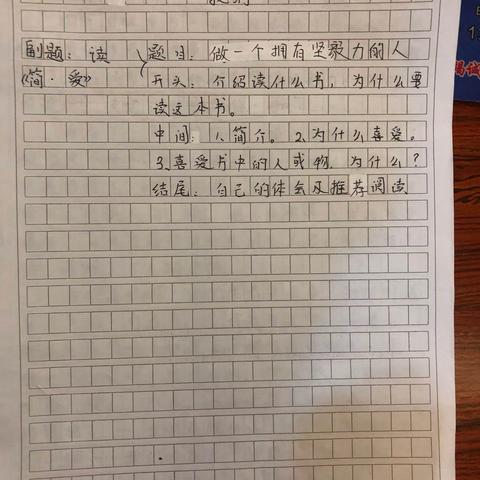 提纲
副题：读 题目：做一个拥有坚毅力的人
《简·爱》 开头：介绍读什么书，为什么要
读这本书。
中间：1、简介。2、为什么喜爱。
3、喜爱书中的人或物，为什么？
结尾：自己的体会及推荐阅读